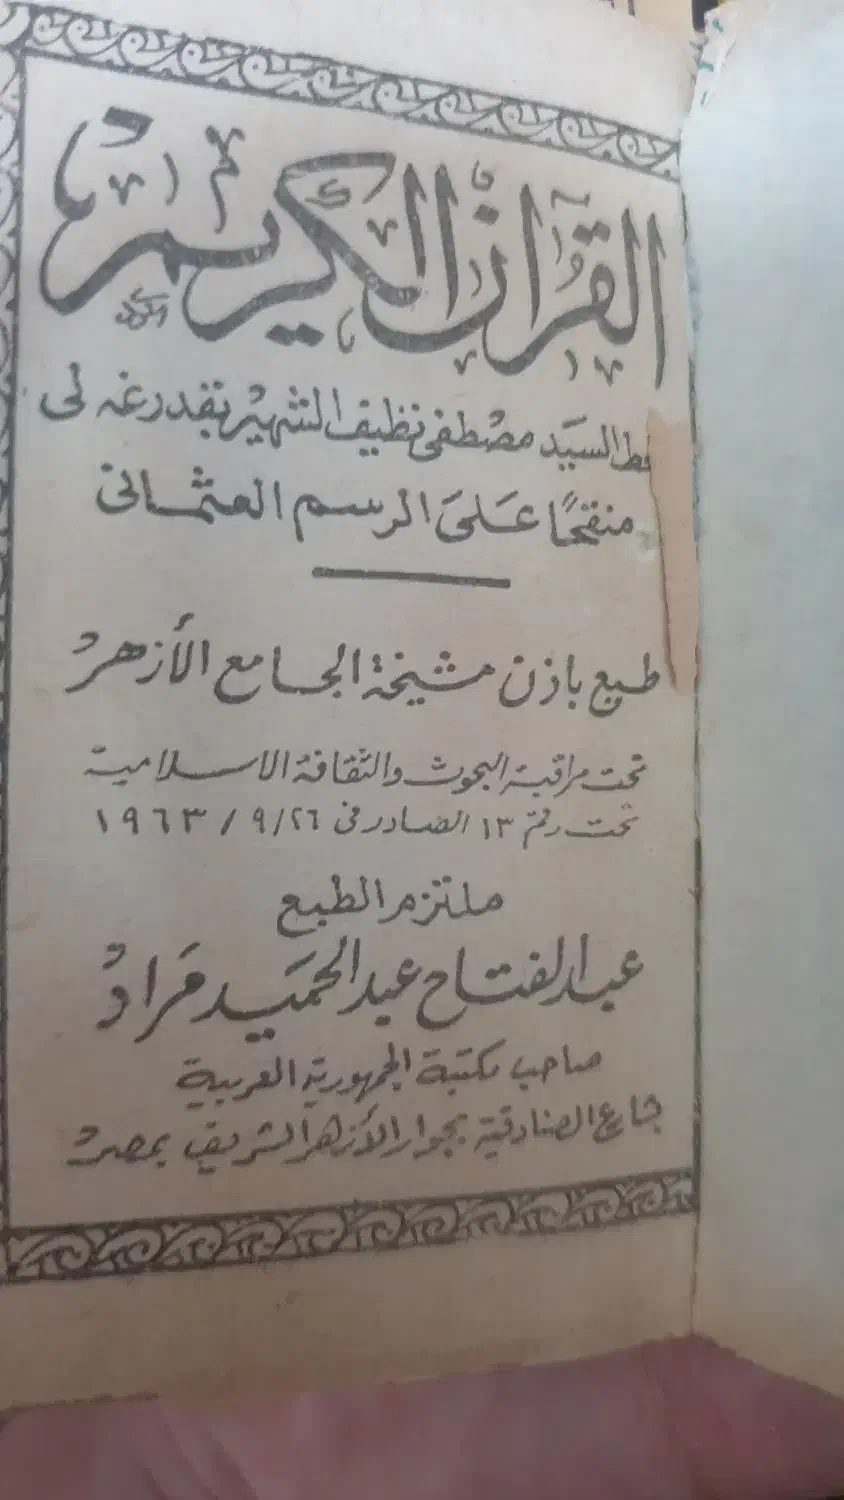 القرآن الكريم
السيد مصطفى نظيف الشهير بقدرغه لى
منقحًا عَلىَ الرسم العثمانى
طبع باذن مشيخة الجامع الأزهر
تحت مراقبة البحوث والثقافة الاسلامية
تحت رقم ١٣ الصادر فى ٢٦/٩/١٩٦٣
ملتزم الطبع
عبد الفتاح عبد الحميد مراد
صاحب مكتبة الجمهورية العربية
شارع الصنادقية بجوار الأزهر الشريف بمصر